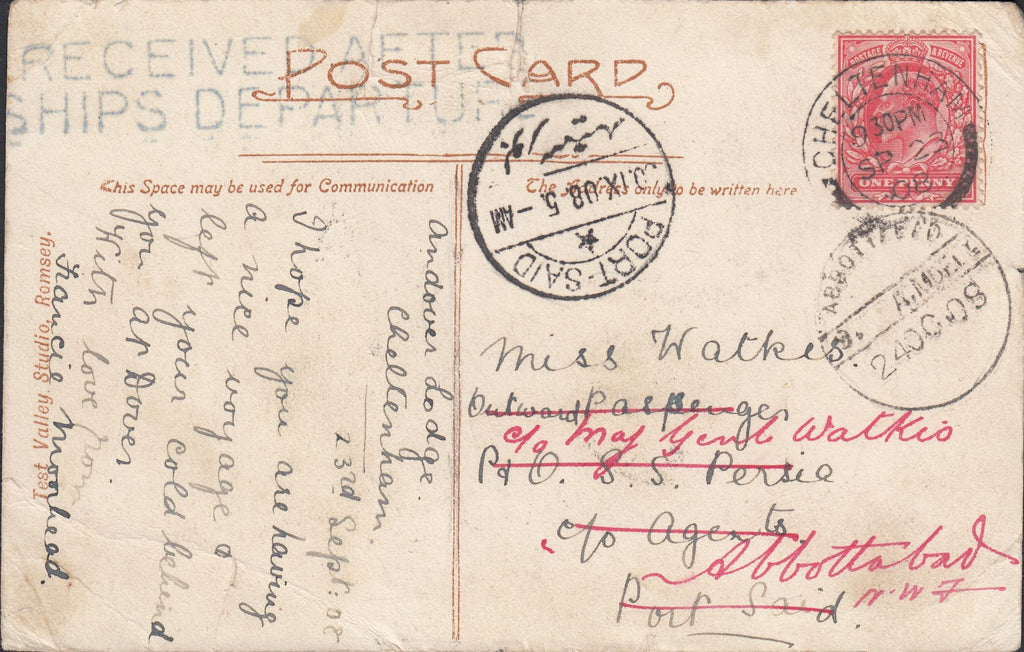 RECEIVED AFTER
SHIPS DEPARTURE
POST CARD
POSTAGE & REVENUE
ONE PENNY
CHELTENHAM
9 30PM
SP 23
08
PORT-SAID
30.IX.08 5.-AM
24OC.08
This Space may be used for Communication
The Address only to be written here
Andover Lodge.
Cheltenham.
23rd Sept: 08
I hope you are having
a nice voyage &
left your cold behind
you at Dover
With love from
Francie Moorhead.
Test Valley Studio, Romsey.
Miss Watkis.
Outward Passenger
c/o Maj Genl Watkis
P&O. S.S. Persia
c/o Agents.
Abbottabad
Port Said
N.W.F